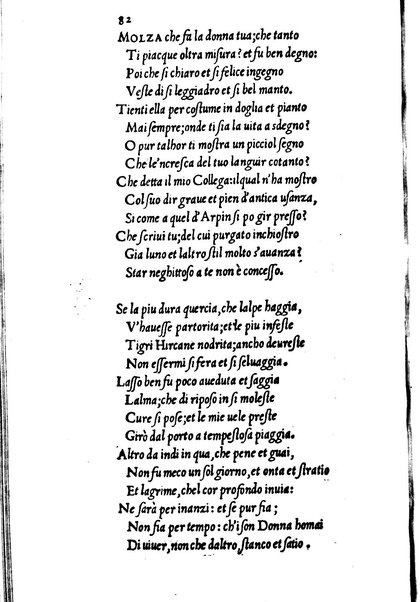 82
MOLZA che fa la donna tua; che tanto
Ti piacque oltra misura? et fu ben degno:
Poi che si chiaro et si felice ingegno
Veste di si leggiadro et si bel manto.
Tienti ella per costume in doglia et pianto
Mai sempre; onde ti sia la uita a sdegno?
O pur talhor ti mostra un picciol segno
Che le'ncresca del tuo languir cotanto?
Che detta il mio Collega: il qual n'ha mostro
Col suo dir graue et pien d'antica usanza,
Si come a quel d'Arpin si po gir presso?
Che scriui tu; del cui purgato inchiostro
Gia luno et laltro stil molto s'auanza?
Star neghittoso a te non è concesso.
Se la piu dura quercia, che lalpe haggia,
V'hauesse partorita; et le piu infeste
Tigri Hircane nodrita; ancho deureste
Non essermi si fera et si seluaggia.
Lasso ben fu poco aueduta et saggia
Lalma; che di riposo in si moleste
Cure si pose; et le mie uele preste
Girò dal porto a tempestosa piaggia.
Altro da indi in qua, che pene et guai,
Non fu meco un sol giorno, et onta et stratio
Et lagrime, chel cor profondo inuia:
Ne sarà per inanzi: et se pur fia;
Non fia per tempo: ch'i son Donna homai
Di uiuer, non che daltro, stanco et satio.